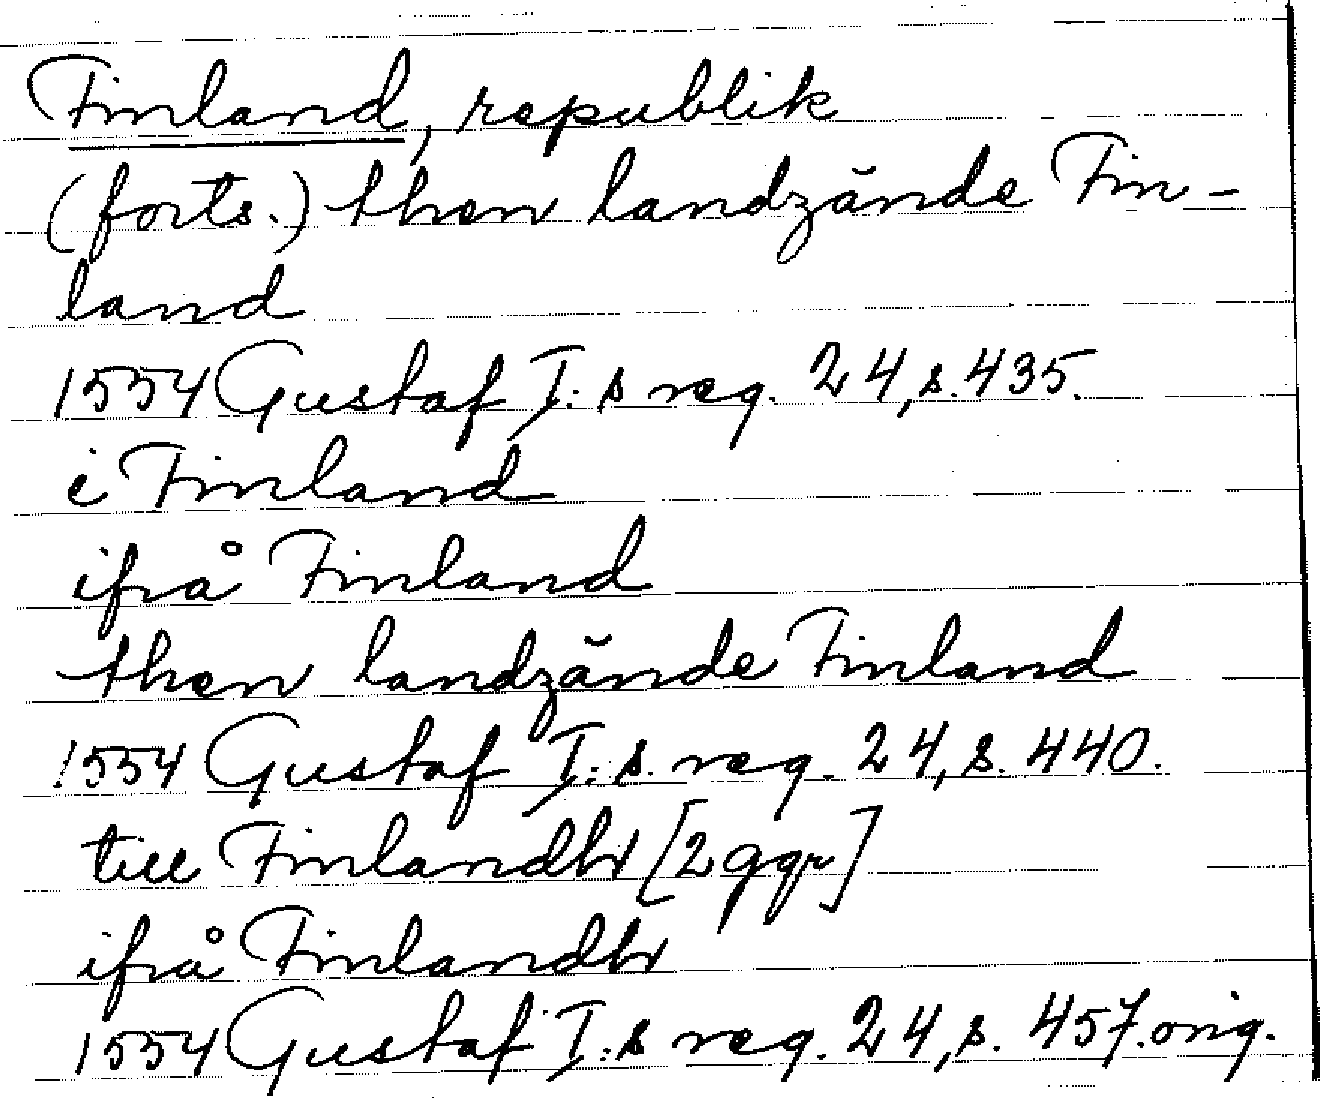 Finland, republik
(forts.) then landzände Fin-
land
1554 Gustaf I:s reg. 24, s. 435.
i Finland
ifrå Finland
then landzände Finland
1554 Gustaf I:s. reg. 24, s. 440.
till Finlandh [2 ggr]
ifrå Finlandh
1554 Gustaf I:s reg. 24, s. 457. orig.